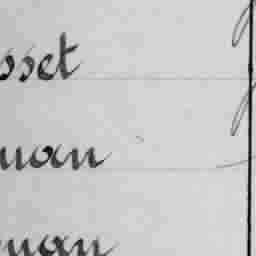 sset
uan
uan